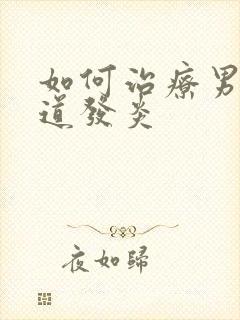 如何治療男
道發炎
夜如歸